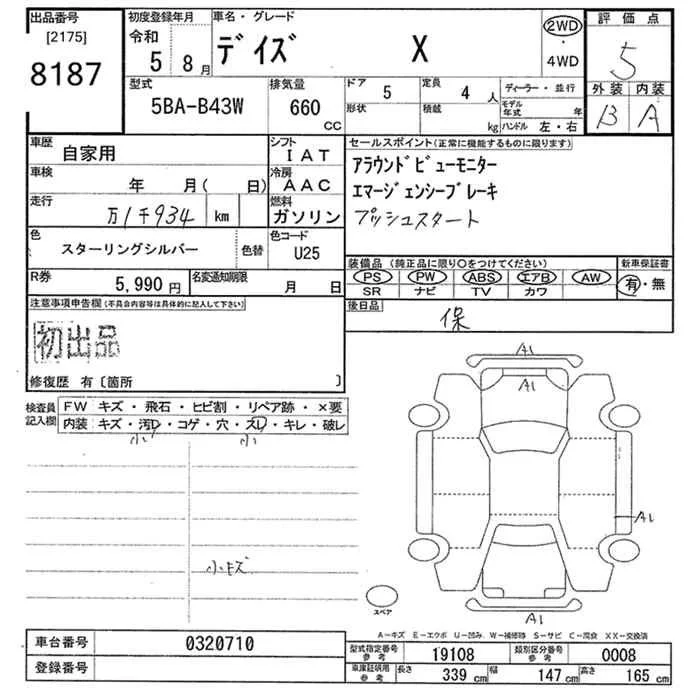 出品番号
[2175]
8187
初度登録年月
令和 5年 8月
車名・グレード
デイズ X
2WD
・
4WD
評価点
5
外装 内装
B A
型式
5BA-B43W
排気量
660
CC
ドア 5
形状
定員 4 人
積載 kg
ディーラー・並行
モデル年式 年
ハンドル 左・右
車歴
自家用
シフト
IAT
車検
年 月( 日)
冷房
AAC
走行
万1千934 km
燃料
ガソリン
色
スターリングシルバー
色替
色コード
U25
R券
5,990 円
名変通知期限
月 日
セールスポイント(正常に機能するものに限ります)
アラウンドビューモニター
エマージェンシーブレーキ
プッシュスタート
装備品 (純正品に限り○をつけてください)
PS PW ABS エアB AW
SR ナビ TV カワ
新車保証書
有・無
後日品
保
注意事項申告欄(不具合内容等は具体的に記入して下さい)
初出品
修復歴 有〔箇所 〕
検査員
記入欄
FW キズ・飛石・ヒビ割・リペア跡・×要
内装 キズ・汚レ・コゲ・穴・スレ・キレ・破レ
小 小
小キズ
A1
A1
A1
A1
スペア
A-キズ E-エクボ U-凹み W-補修跡 S-サビ C-腐食 XX-交換済
車台番号
0320710
登録番号
型式指定番号
参考
19108
類別区分番号
参考
0008
車庫証明用
参考
長さ 339 cm
幅 147 cm
高さ 165 cm